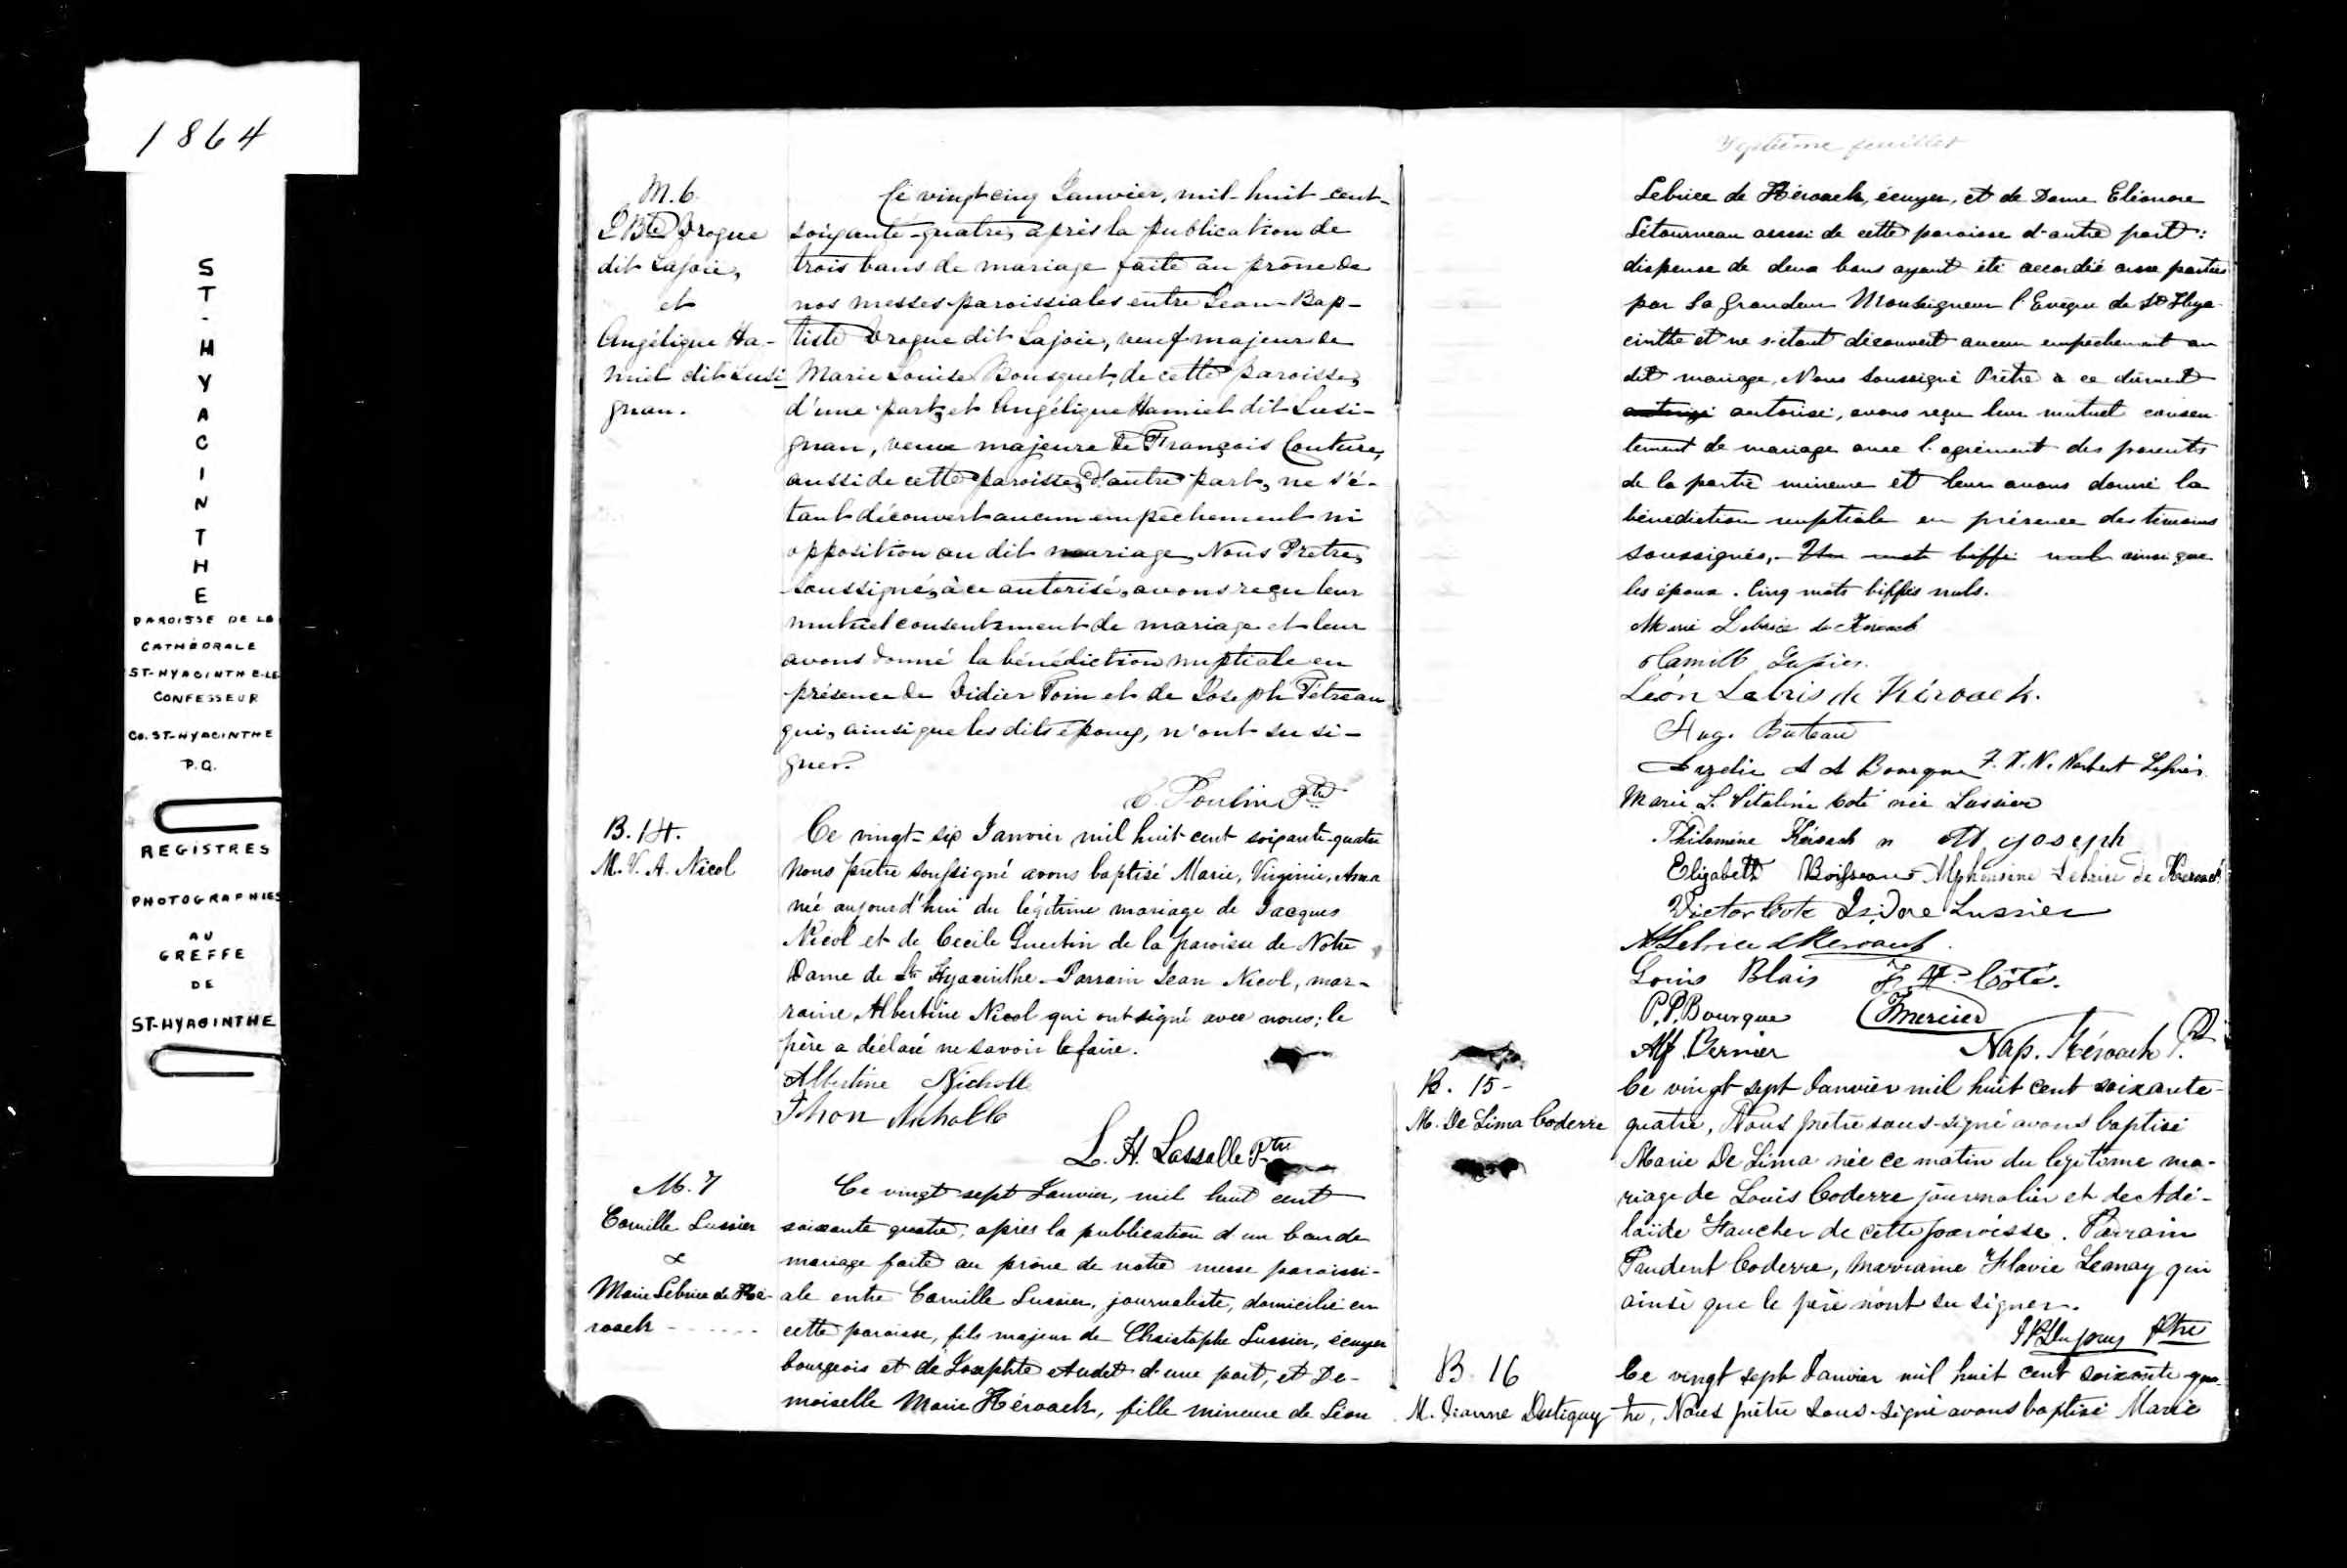 1864
ST-HYACINTHE
PAROISSE DE LA
CATHÉDRALE
ST-HYACINTHE-LE
CONFESSEUR
Co. ST-HYACINTHE
P.Q.
REGISTRES
PHOTOGRAPHIES
AU
GREFFE
DE
ST-HYACINTHE
M. 6.
J Bte Drogue
dit Lajoie,
et
Angélique Ha-
miel dit Lusi-
gnan.
Ce vingt cinq Janvier, mil-huit-cent-
soixante-quatre, après la publication de
trois bans de mariage faite au prône de
nos messes paroissiales entre Jean-Bap-
tiste Drogue dit Lajoie, veuf majeur de
Marie Louise Bousquet, de cette paroisse,
d'une part, et Angélique Hamiel dit Lusi-
gnan, veuve majeure de François Couture,
aussi de cette paroisse, d'autre part, ne s'é-
tant découvert aucun empêchement ni
opposition au dit mariage, Nous Prêtre,
soussigné, à ce autorisé, avons reçu leur
mutuel consentement de mariage et leur
avons donné la bénédiction nuptiale en
présence de Didier Foin et de Joseph Tétreau
qui, ainsi que les dits époux, n'ont su si-
gner.
C. Poulin Ptre
B. 14.
M. V. A. Nicol
Ce vingt-six Janvier mil huit cent soixante-quatre
nous prêtre soussigné avons baptisé Marie, Virginie, Anna
née aujourd'hui du légitime mariage de Jacques
Nicol et de Cecile Guertin de la paroisse de Notre
Dame de St Hyacinthe - Parrain Jean Nicol, mar-
raine Albertine Nicol qui ont signé avec nous; le
père a déclaré ne savoir le faire.
Albertine Nicholle
Jhon Nicholle
L. H. Lassalle Ptre
M. 7
Camille Lussier
&
Marie Lebrice de Ké-
roack
Ce vingt sept Janvier, mil huit cent
soixante quatre, après la publication d'un ban de
mariage faite au prône de notre messe paroissi-
ale entre Camille Lussier, journaliste, domicilié en
cette paroisse, fils majeur de Christophe Lussier, écuyer
bourgeois et de Josephte Audet d'une part, et De-
moiselle Marie Kéroack, fille mineure de Léon
Septième feuillet
Lebrice de Kéroack, écuyer, et de Dame Eléonore
Létourneau aussi de cette paroisse d'autre part:
dispense de deux bans ayant été accordée aux parties
par Sa Grandeur Monseigneur l'Evêque de St Hya-
cinthe et ne s'étant découvert aucun empêchement au
dit mariage, Nous soussigné Prêtre à ce dûment
autorisé, avons reçu leur mutuel consen-
tement de mariage avec l'agrément des parents
de la partie mineure et leur avons donné la
bénédiction nuptiale en présence des témoins
soussignés, Un mot biffé nul ainsi que
les époux. Cinq mots biffés nuls.
Marie Lebrice de Kéroack
Camille Lussier.
Léon Lebris de Kéroack.
Aug. Buteau
Bourque
Marie L. Vitaline Coté née Lussier
Philomène Kéroack
Joseph
Elizabeth Boisseau Alphonsine Lebrice de Kéroack
Victor Coté Isidore Lussier
Louis Blais Coté.
P. P. Bourque Mercier
Alf. Bernier Nap. Kéroack P.
B. 15-
M. De Lima Coderre
Ce vingt sept Janvier mil huit cent soixante-
quatre, Nous prêtre sous-signé avons baptisé
Marie De Lima née ce matin du légitime ma-
riage de Louis Coderre journalier et de Adé-
laïde Faucher de cette paroisse. Parrain
Prudent Coderre, marraine Flavie Lemay qui
ainsi que le père n'ont su signer.
Ptre
B. 16
M. Dianne Dutigny
Ce vingt sept Janvier mil huit cent soixante qua-
tre, Nous prêtre sous-signé avons baptisé Marie